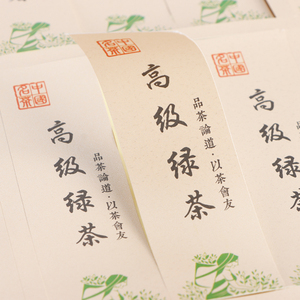 中國名茶
高級绿茶
品茶論道·以茶會友
中國名茶
高級绿茶
品茶論道·以茶會友
中國名茶
高級绿茶